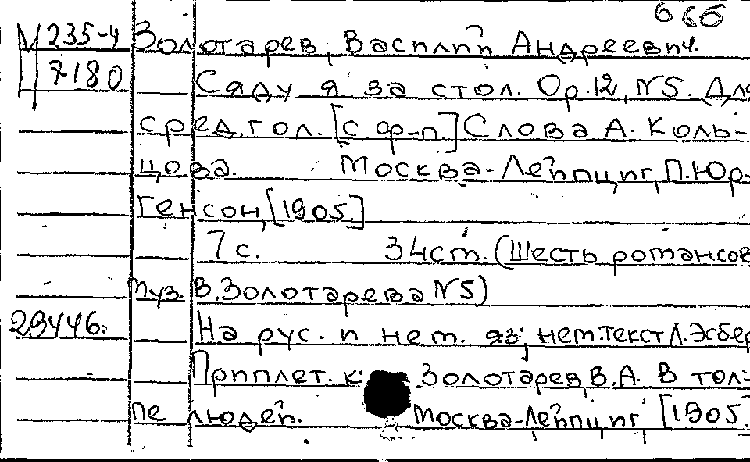 666
М 235-4 Золотарев, Василий Андреевич.
7180 Сяду я за стол. Ор.12, N5. Для
сред. гол. [с ф-п.] Слова А. Коль-
цова. Москва-Лейпциг, П.Юр-
генсон, [1905.]
7 с. 34см. (Шесть романсов
муз. В. Золотарева N5)
29446. На рус. и нем. яз; нем. текст Л. Эсбер
Приплет. к: Золотарев, В.А. В тол-
пе людей. Москва-Лейпциг [1905.